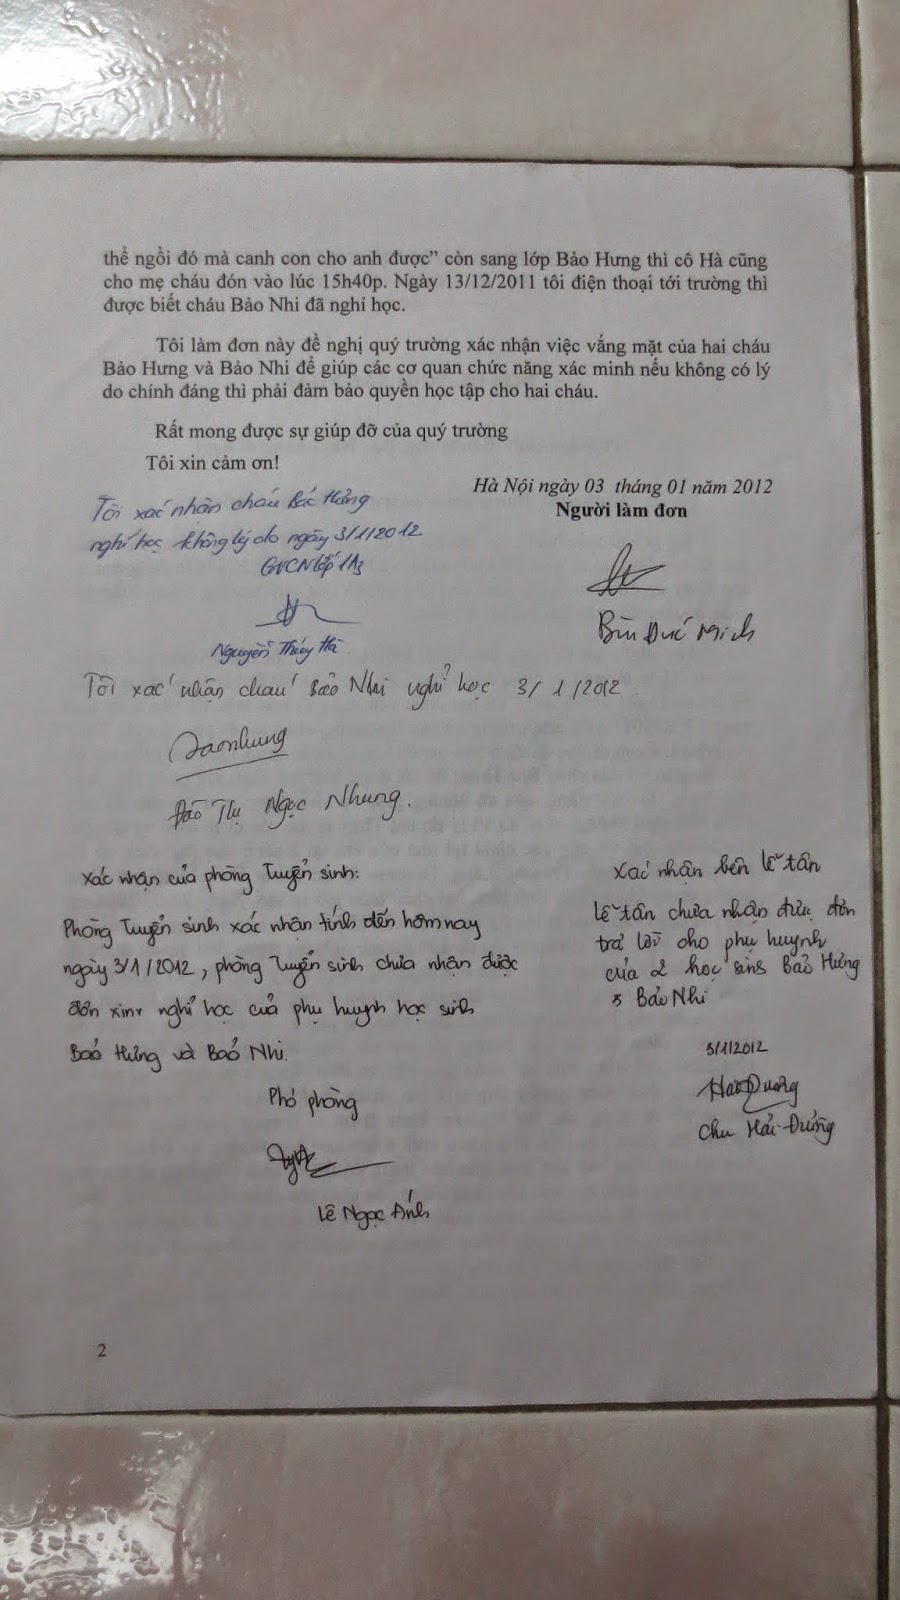 thể ngồi đó mà canh con cho anh được” còn sang lớp Bảo Hưng thì cô Hà cũng
cho mẹ cháu đón vào lúc 15h40p. Ngày 13/12/2011 tôi điện thoại tới trường thì
được biết cháu Bảo Nhi đã nghỉ học.
Tôi làm đơn này đề nghị quý trường xác nhận việc vắng mặt của hai cháu
Bảo Hưng và Bảo Nhi để giúp các cơ quan chức năng xác minh nếu không có lý
do chính đáng thì phải đảm bảo quyền học tập cho hai cháu.
Rất mong được sự giúp đỡ của quý trường
Tôi xin cảm ơn!
Hà Nội ngày 03 tháng 01 năm 2012
Người làm đơn
Tôi xác nhận cháu Bảo Hưng
nghỉ học không lý do ngày 3/1/2012
GVCN lớp 1A3
Nguyễn Thúy Hà
Bùi Đức Minh
Tôi xác nhận cháu Bảo Nhi nghỉ học 3/1/2012.
Daonhung
Đào Thị Ngọc Nhung.
Xác nhận của phòng Tuyển sinh:
Phòng Tuyển sinh xác nhận tính đến hôm nay
ngày 3/1/2012, phòng Tuyển sinh chưa nhận được
đơn xin nghỉ học của phụ huynh học sinh
Bảo Hưng và Bảo Nhi.
Phó phòng
Lê Ngọc Ánh
Xác nhận bên lễ tân
Lễ tân chưa nhận được đơn
trả lời cho phụ huynh
của 2 học sinh Bảo Hưng
& Bảo Nhi
3/1/2012
Chu Hải Đường
2